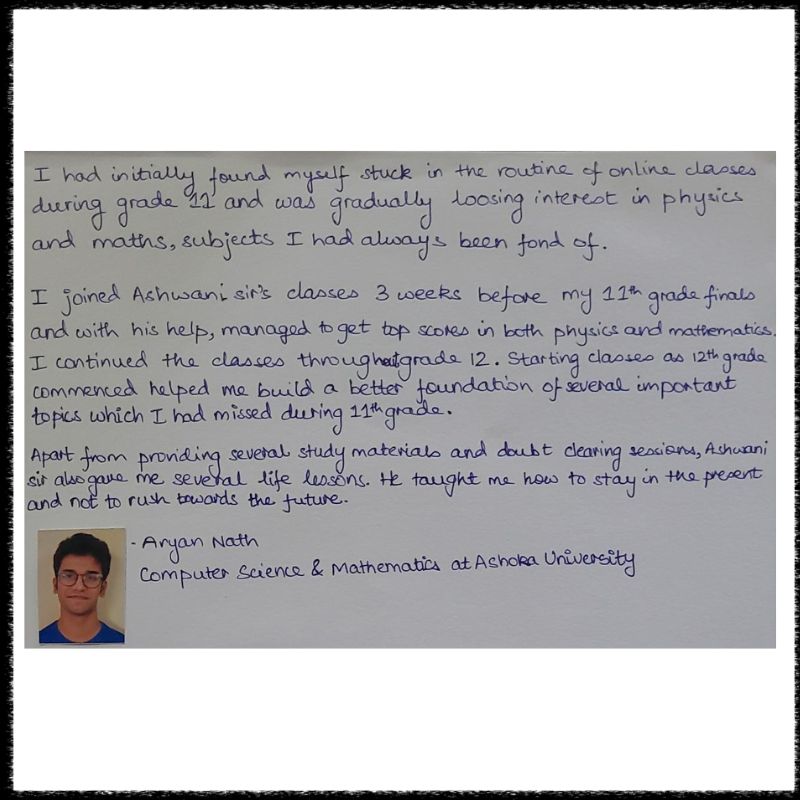 I had initially found myself stuck in the routine of online classes
during grade 11 and was gradually loosing interest in physics
and maths, subjects I had always been fond of.
I joined Ashwani sir's classes 3 weeks before my 11th grade finals
and with his help, managed to get top scores in both physics and mathematics.
I continued the classes throughout grade 12. Starting classes as 12th grade
commenced helped me build a better foundation of several important
topics which I had missed during 11th grade.
Apart from providing several study materials and doubt clearing sessions, Ashwani
sir also gave me several life lessons. He taught me how to stay in the present
and not to rush towards the future.
- Aryan Nath
Computer Science & Mathematics at Ashoka University